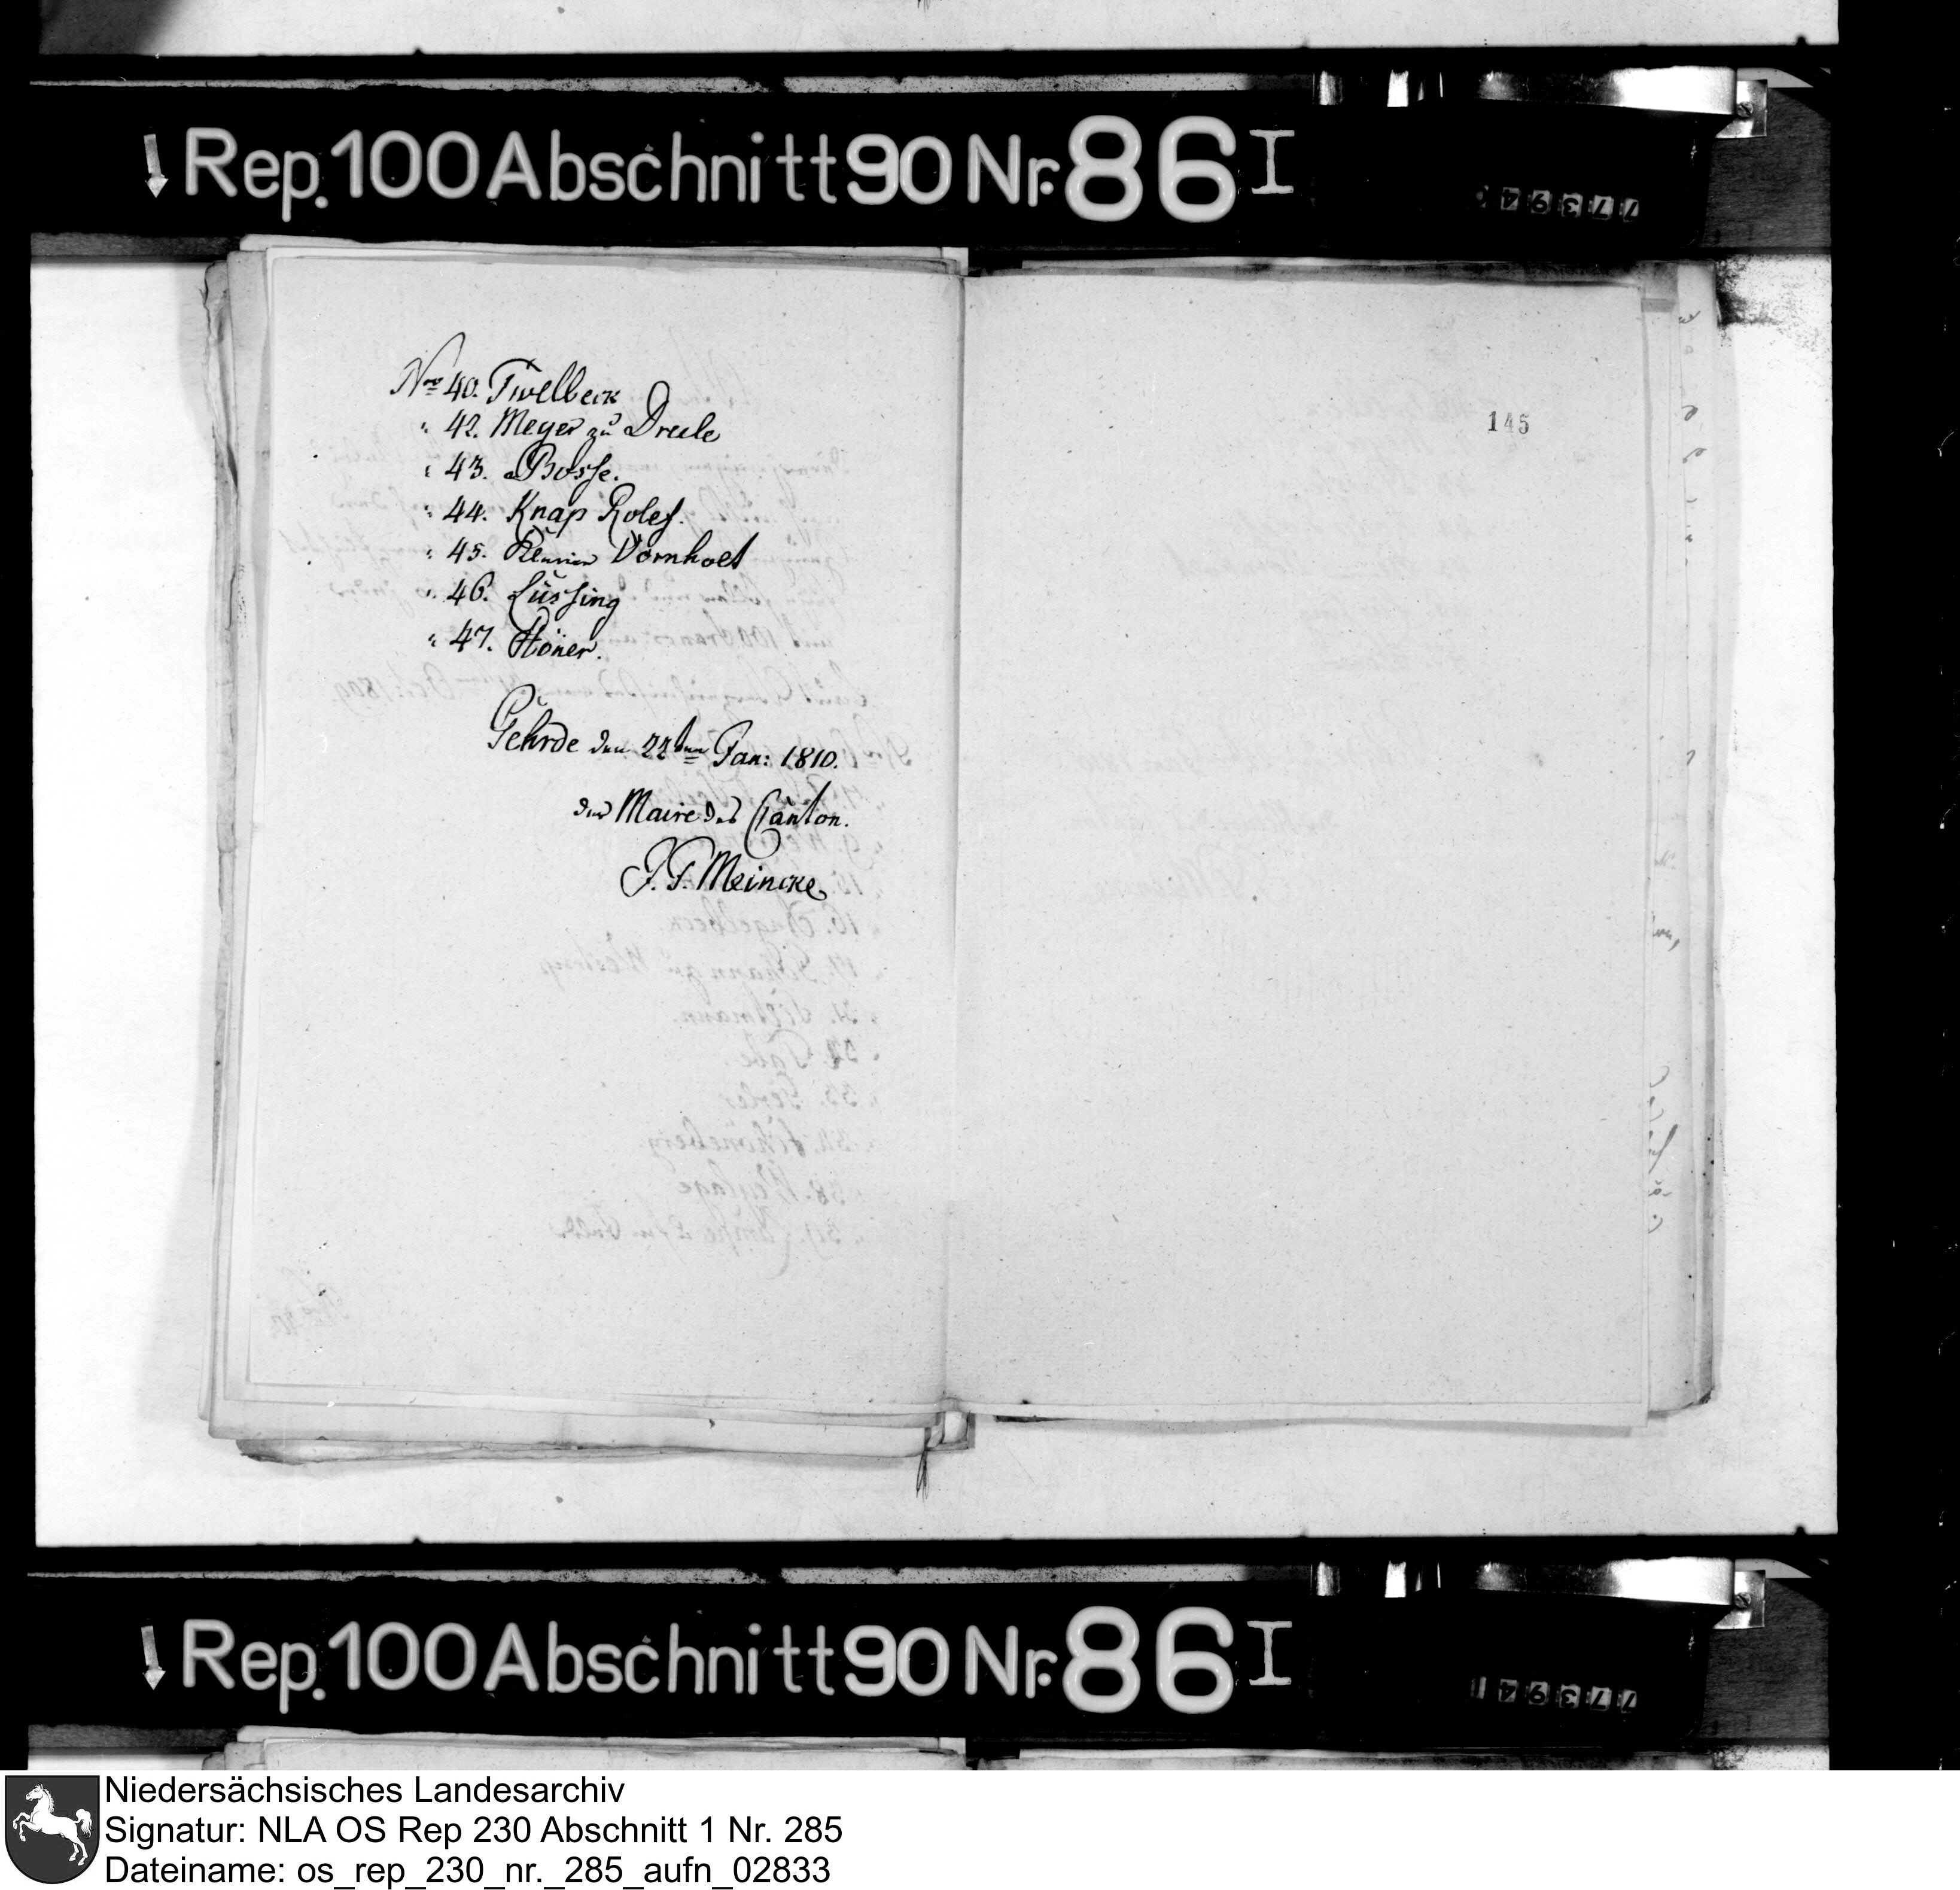 Rep. 100 Abschnitt 90 Nr. 86 I
773940
Nro 40. Twelbeck
" 42. Meyer zu Drele
" 43. Bosse.
" 44. Knap Rolef.
" 45. Vornholt
" 46. Lüssing
" 47. Höner.
Gehrde den 22ten Jan: 1810.
der Maire des Canton.
J. G. Meincke
145
Rep. 100 Abschnitt 90 Nr. 86 I
773941
Niedersächsisches Landesarchiv
Signatur: NLA OS Rep 230 Abschnitt 1 Nr. 285
Dateiname: os_rep_230_nr._285_aufn_02833